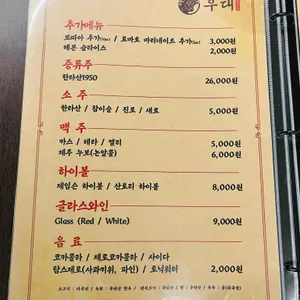 우대
추가메뉴
또띠아 추가(10ea) / 토마토 마리네이드 추가(5ea) 3,000원
레몬 슬라이스 2,000원
증류주
한라산1950 26,000원
소 주
한라산 / 참이슬 / 진로 / 새로 5,000원
맥 주
카스 / 테라 / 켈리 5,000원
제주 누보(논알콜) 6,000원
하이볼
제임슨 하이볼 / 산토리 하이볼 8,000원
글라스와인
Glass (Red / White) 9,000원
음 료
코카콜라 / 제로코카콜라 / 사이다
탐스제로(사과키위, 파인) / 토닉워터 2,000원